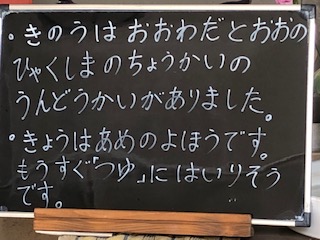 ・きのうは おおわだとおおの
ひゃくしまのちょうかいの
うんどうかいがありました。
・きょうはあめのよほうです。
もうすぐ「つゆ」にはいりそう
です。